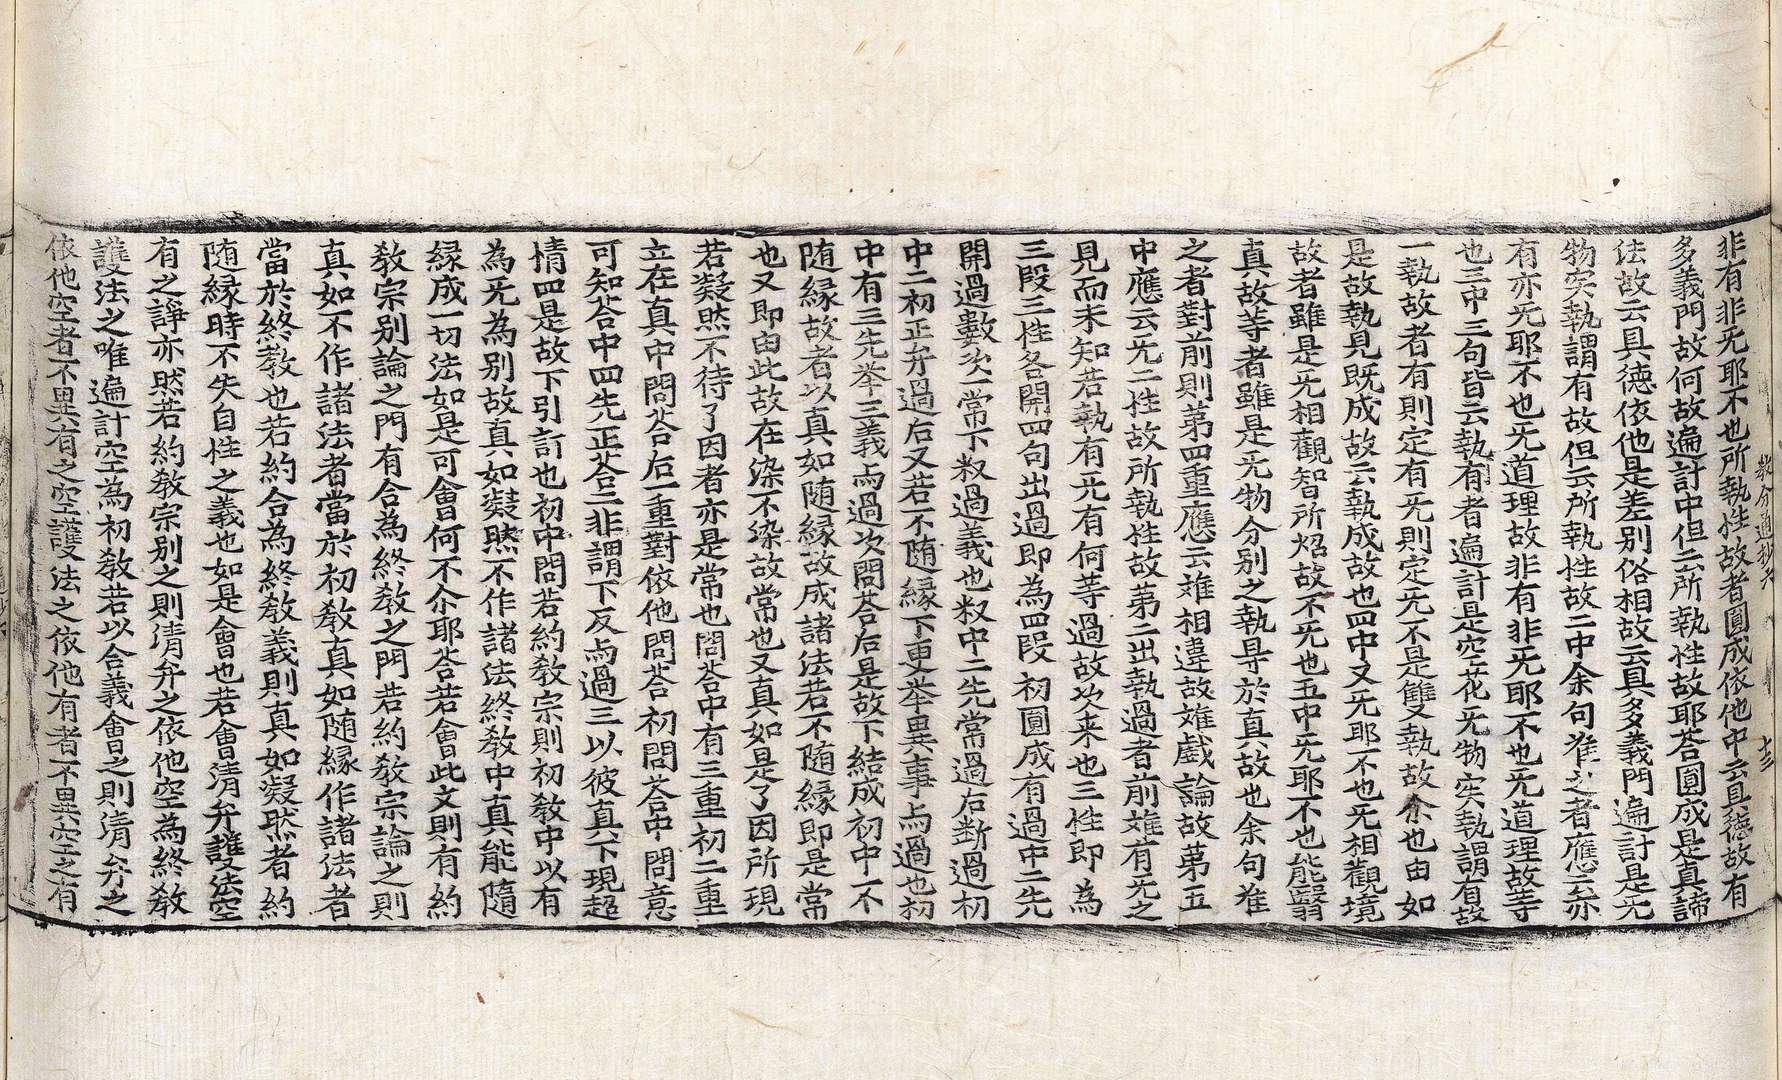 教分通抄六　十三
非有非旡耶不也所執性故者圓成依他中云具德故有
多義門故何故遍計中但云所執性故耶荅圓成是真諦
法故云具德依他是差別俗相故云具多義門遍計是旡
物実執謂有故但云所執性故二中余句准之者應云亦
有亦旡耶不也旡道理故非有非旡耶不也旡道理故等
也三中三句皆云執有者遍計是空花旡物実執謂有故
一執故者有則定有旡則定旡不是雙執故尒也由如
是故執見既成故云執成故也四中又旡耶不也旡相觀境
故者雖是旡相觀智所炤故不旡也五中旡耶不也能翳
真故等者雖是旡物分別之執㝵於真故也余句准
之者對前則第四重應云难相違故难戱論故第五
中應云旡二性故所執性故第二出執過者前难有旡之
見而未知若執有旡有何等過故次来也三性即為
三段三性各開四句出過即為四段初圓成有過中二先
開過數次一常下叙過義也叙中二先常過后断過初
中二初正弁過后又若不随縁下更举異事示過也初
中有三先举三義示過次問荅后是故下結成初中一不
随縁故者以真如随縁故成諸法若不随縁即是常
也又即由此故在染不染故常也又真如是了因所現
若凝然不待了因者亦是常也問荅中有三重初二重
立在真中問荅后一重對依他問荅初問荅中問意
可知荅中四先正荅二非謂下反示過三以彼真下現超
情四是故下引訂也初中問若約教宗則初教中以有
為旡為別故真如凝然不作諸法終教中真能隨
縁成一切法如是可會何不尒耶荅若會此文則有約
教宗別論之門有合為終教之門若約教宗論之則
真如不作諸法者當於初教真如随縁作諸法者
當於終教也若約合為終教義則真如凝然者約
随縁時不失自性之義也如是會也若會清弁護法空
有之諍亦然若約教宗別之則清弁之依他空為終教
護法之唯遍計空為初教若以合義會之則清弁之
依他空者不異有之空護法之依他有者不異空之有